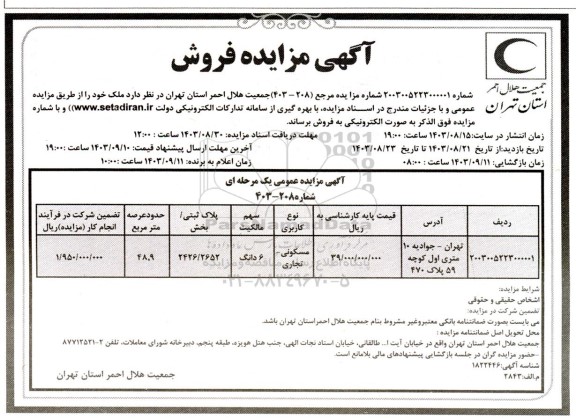 آگهی مزایده فروش
جمعیت هلال احمر
استان تهران
شماره ۲۰۰۳۰۰۵۲۲۳۰۰۰۰۰۱ شماره مزایده مرجع (۲۰۸ - ۴۰۳) جمعیت هلال احمر استان تهران در نظر دارد ملک خود را از طریق مزایده
عمومی و با جزئیات مندرج در اسناد مزایده، با بهره گیری از سامانه تدارکات الکترونیکی دولت www.setadiran.ir)) و با شماره
مزایده فوق الذکر به صورت الکترونیکی به فروش برساند.
زمان انتشار در سایت: ۱۴۰۳/۰۸/۱۵ ساعت : ۱۹:۰۰ مهلت دریافت اسناد مزایده: ۱۴۰۳/۰۸/۳۰ ساعت : ۱۲:۰۰
تاریخ بازدید:از تاریخ ۱۴۰۳/۰۸/۲۱ تا تاریخ ۱۴۰۳/۰۸/۲۳ آخرین مهلت ارسال پیشنهاد قیمت: ۱۴۰۳/۰۹/۱۰ ساعت : ۱۹:۰۰
زمان بازگشایی: ۱۴۰۳/۰۹/۱۱ ساعت : ۰۸:۰۰ زمان اعلام به برنده: ۱۴۰۳/۰۹/۱۱ ساعت : ۱۰:۰۰
آگهی مزایده عمومی یک مرحله ای
شماره۲۰۸-۴۰۳
ردیف آدرس قیمت پایه کارشناسی به ریال نوع کاربری سهم مالکیت پلاک ثبتی/ بخش حدودعرصه متر مربع تضمین شرکت در فرآیند انجام کار (مزایده)ریال
۲۰۰۳۰۰۵۲۲۳۰۰۰۰۰۱ تهران - جوادیه ۱۰ متری اول کوچه ۵۹ پلاک ۴۷۰ ۳۹/۰۰۰/۰۰۰/۰۰۰ مسکونی- تجاری ۶ دانگ ۲۴۲۶/۲۶۵۲ ۴۸,۹ ۱/۹۵۰/۰۰۰/۰۰۰
۰۲۱-۸۸۳۴۹۶۷۰-۵
شرایط مزایده:
اشخاص حقیقی و حقوقی
تضمین شرکت در مزایده:
می بایست بصورت ضمانتنامه بانکی معتبروغیر مشروط بنام جمعیت هلال احمراستان تهران باشد.
محل تحویل اصل ضمانتنامه مزایده :
جمعیت هلال احمر استان تهران واقع در خیابان آیت ا... طالقانی، خیابان استاد نجات الهی، جنب هتل هویزه، طبقه پنجم، دبیرخانه شورای معاملات، تلفن ۲-۸۷۷۱۲۵۲۱
-حضور مزایده گران در جلسه بازگشایی پیشنهادهای مالی بلامانع است.
شناسه آگهی:۱۸۲۳۴۴۶
م.الف:۲۸۴۳
جمعیت هلال احمر استان تهران